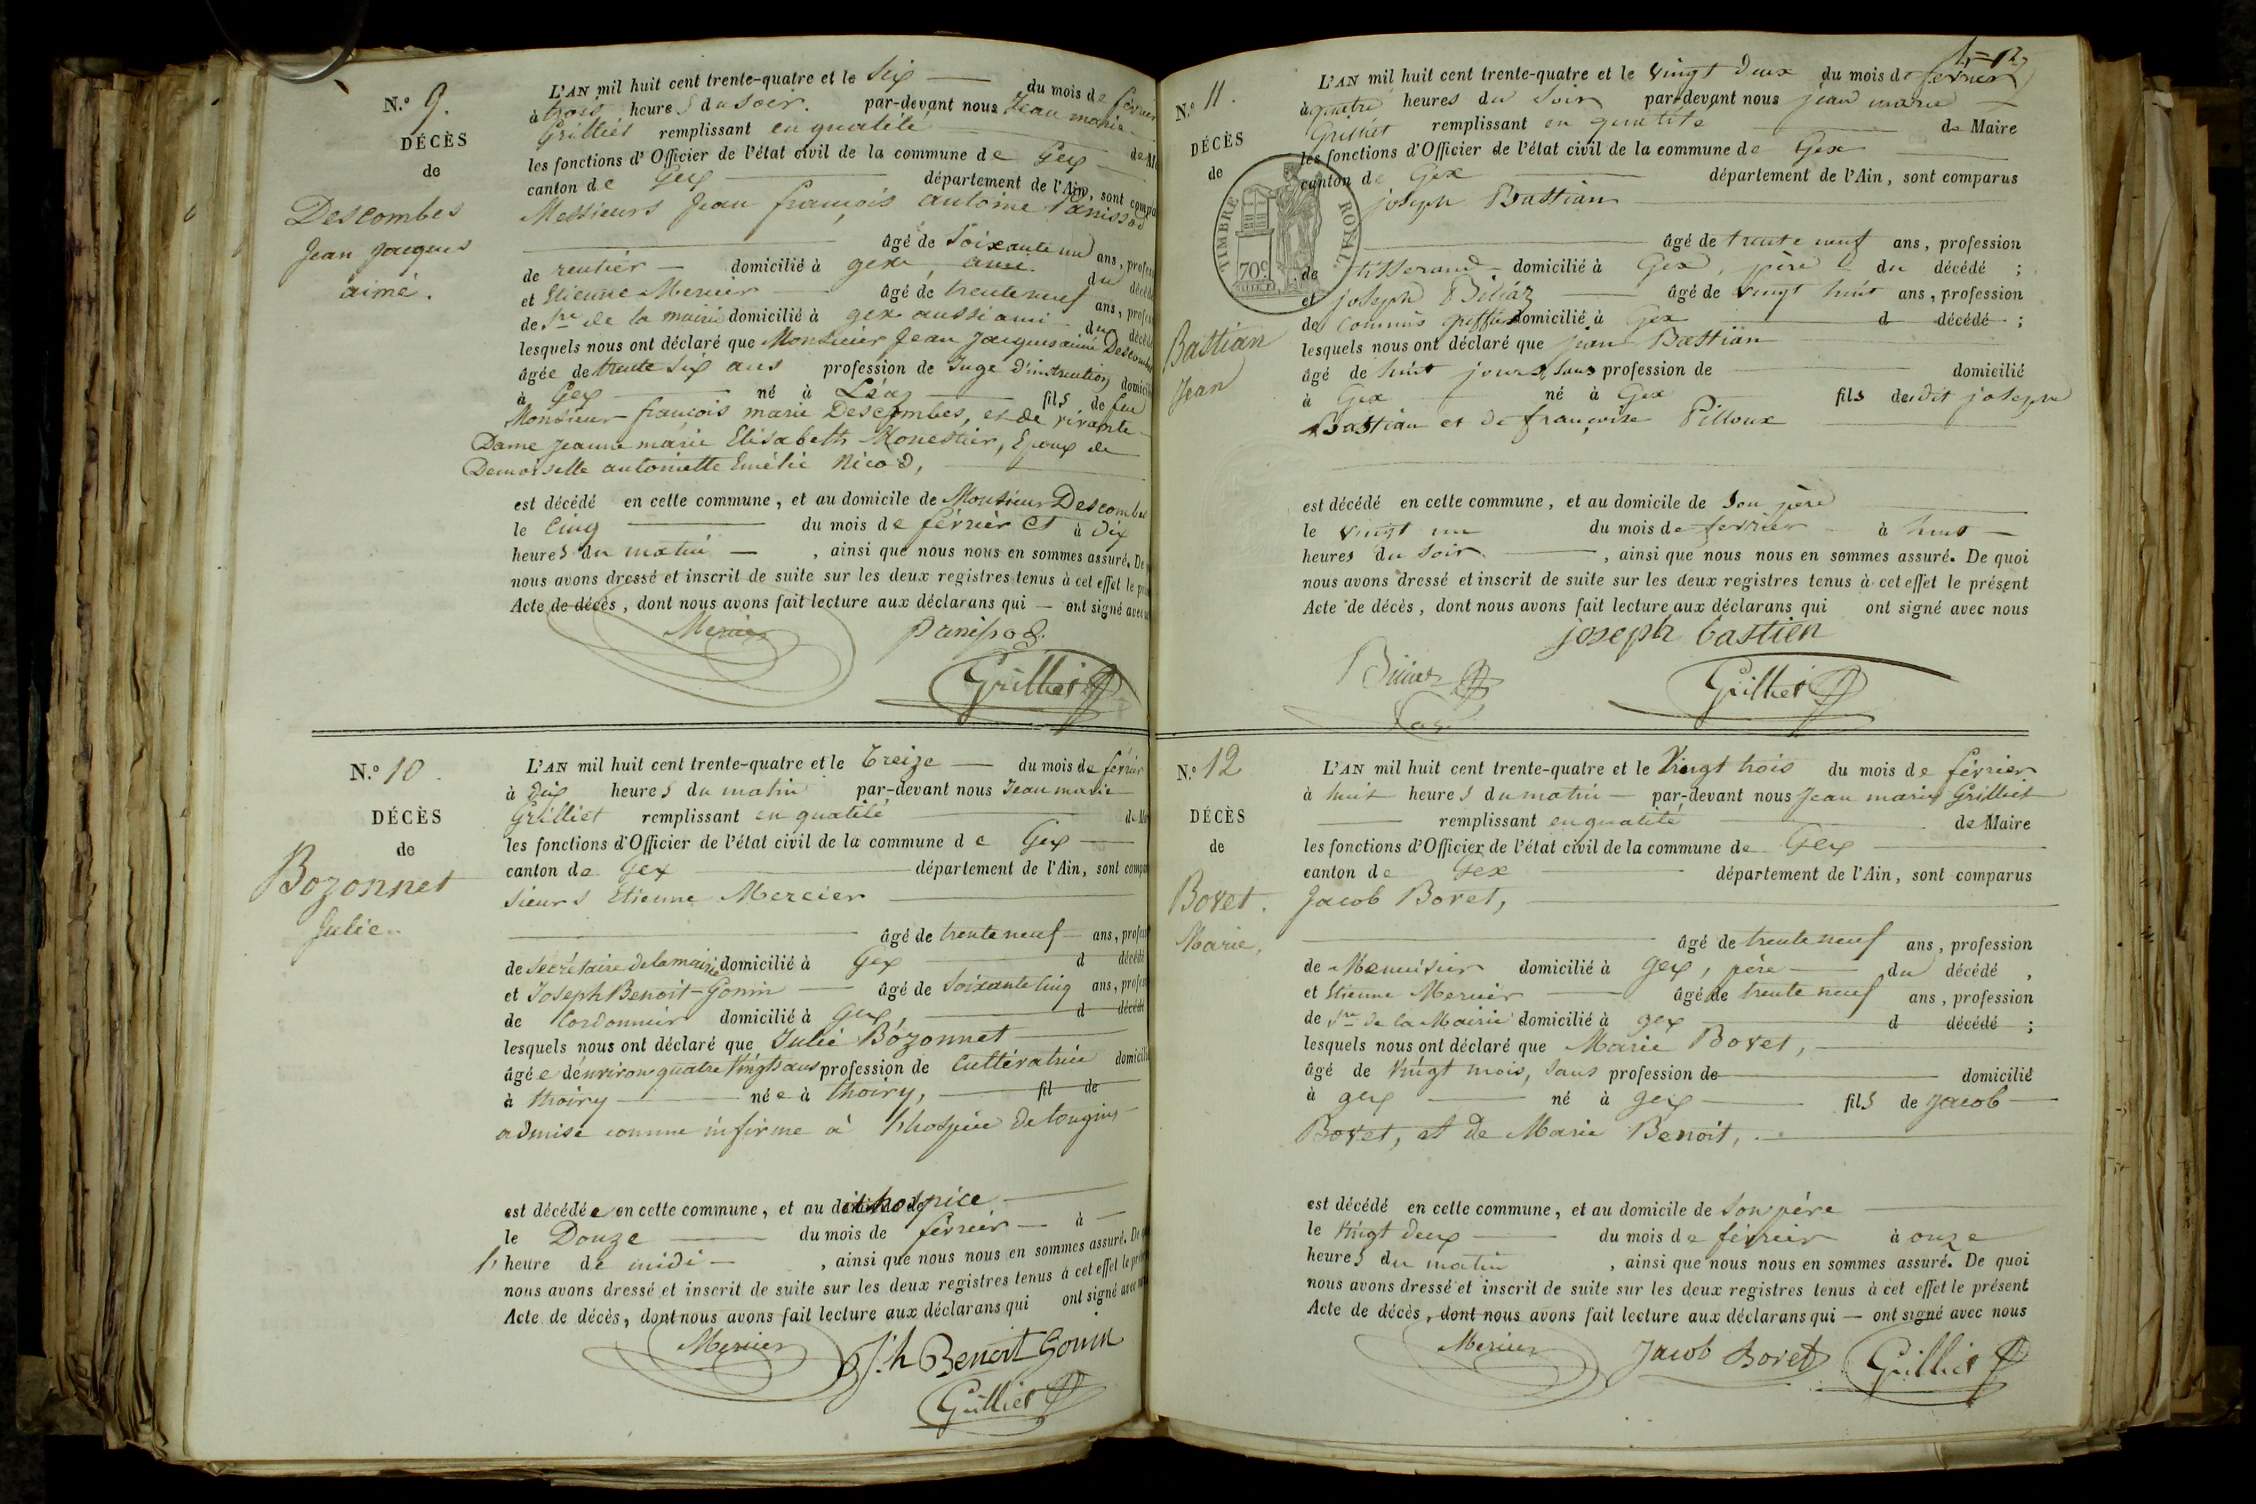 N.º 9.
DÉCÈS
de
Descombes
Jean Jacques
aimé.
L'AN mil huit cent trente-quatre et le Six du mois de février
à trois heures du soir. par-devant nous Jean marie
Grilliet remplissant en qualité de M
les fonctions d'Officier de l'état civil de la commune de Gex
canton de Gex département de l'Ain, sont compa
Messieurs Jean françois antoine Panissod
âgé de Soixante un ans, profes
de rentier domicilié à gex, ami du décédé
et Etienne Mercier âgé de trente neuf ans, profes
de Sre de la mairie domicilié à gex aussi ami du décédé
lesquels nous ont déclaré que Monsieur Jean Jacques aimé Descombes
âgée de trente Six ans profession de Juge d'instruction domicil
à Gex né à Léaz fils de feu
Monsieur françois marie Descombes, et de vivante
Dame Jeanne marie Elisabeth Monestier, Epoux de
Demoiselle antoinette Emélie Nicod,
est décédé en cette commune, et au domicile de Monsieur Descombes
le Cinq du mois de février Ct à Dix
heures du matin, ainsi que nous nous en sommes assuré. De
nous avons dressé et inscrit de suite sur les deux registres tenus à cet effet le pré
Acte de décès, dont nous avons fait lecture aux déclarans qui — ont signé avec
Mercier Panissod.
Grilliet
N.º 10.
DÉCÈS
de
Bozonnet
Julie.
L'AN mil huit cent trente-quatre et le treize du mois de février
à dix heures du matin par-devant nous Jean marie
Grilliet remplissant en qualité de M
les fonctions d'Officier de l'état civil de la commune de Gex
canton de Gex département de l'Ain, sont compa
Sieurs Etienne Mercier
âgé de trente neuf ans, profes
de Secrétaire de la mairie domicilié à Gex d décédé
et Joseph Benoit-Gonin âgé de Soixante Cinq ans, profes
de Cordonnier domicilié à Gex, d décédé
lesquels nous ont déclaré que Julie Bozonnet
âgée d'environ quatre Vingts ans profession de Cultivatrice domicilié
à thoiry née à thoiry, fil de
admise comme infirme à l'hospice de tougin
est décédée en cette commune, et au dit hospice
le Douze du mois de février à
l'heure de midi, ainsi que nous nous en sommes assuré. De
nous avons dressé et inscrit de suite sur les deux registres tenus à cet effet le pré
Acte de décès, dont nous avons fait lecture aux déclarans qui ont signé avec
Mercier J.h Benoit Gonin
Grilliet
N.º 11.
DÉCÈS
de
TIMBRE ROYAL
70c
Bastian
Jean
L'AN mil huit cent trente-quatre et le vingt deux du mois de fevrier
à quatre heures du Soir par-devant nous jean marie
Grilliet remplissant en qualité de Maire
les fonctions d'Officier de l'état civil de la commune de Gex
canton de Gex département de l'Ain, sont comparus
joseph Bastian
âgé de trente neuf ans, profession
de tisserand domicilié à Gex, père du décédé;
et joseph Biliaz âgé de vingt huit ans, profession
de commis greffier domicilié à Gex d décédé;
lesquels nous ont déclaré que jean Bastian
âgé de huit jours, sans profession de domicilié
à Gex né à Gex fils dudit joseph
Bastian et de françoise Pilloux
est décédé en cette commune, et au domicile de Son père
le vingt un du mois de fevrier à huit
heures du Soir, ainsi que nous nous en sommes assuré. De quoi
nous avons dressé et inscrit de suite sur les deux registres tenus à cet effet le présent
Acte de décès, dont nous avons fait lecture aux déclarans qui ont signé avec nous
joseph bastien
Grilliet
N.º 12
DÉCÈS
de
Bovet.
Marie.
L'AN mil huit cent trente-quatre et le Vingt trois du mois de février
à huit heures du matin — par-devant nous Jean marie Grilliet
remplissant en qualité de Maire
les fonctions d'Officier de l'état civil de la commune de Gex
canton de Gex département de l'Ain, sont comparus
Jacob Bovet,
âgé de trente neuf ans, profession
de Menuisier domicilié à gex, père du décédé,
et Etienne Mercier âgé de trente neuf ans, profession
de Sre de la Mairie domicilié à gex d décédé;
lesquels nous ont déclaré que Marie Bovet,
âgé de Vingt mois, Sans profession de domicilié
à gex né à gex fils de Jacob
Bovet, et de Marie Benoit,
est décédé en cette commune, et au domicile de Son père
le Vingt deux du mois de février à onze
heures du matin, ainsi que nous nous en sommes assuré. De quoi
nous avons dressé et inscrit de suite sur les deux registres tenus à cet effet le présent
Acte de décès, dont nous avons fait lecture aux déclarans qui — ont signé avec nous
Mercier Jacob Bovet Grilliet